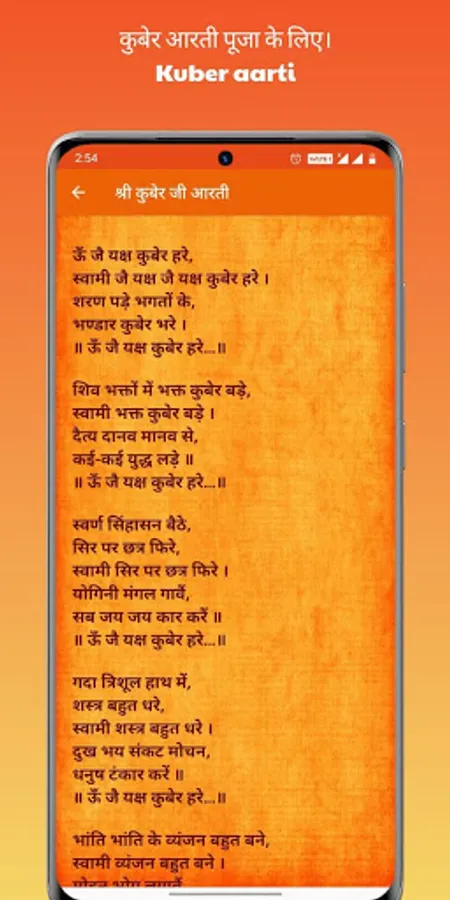 कुबेर आरती पूजा के लिए।
Kuber aarti
2:54
श्री कुबेर जी आरती
ऊँ जै यक्ष कुबेर हरे,
स्वामी जै यक्ष जै यक्ष कुबेर हरे ।
शरण पड़े भगतों के,
भण्डार कुबेर भरे ।
॥ ऊँ जै यक्ष कुबेर हरे...॥
शिव भक्तों में भक्त कुबेर बड़े,
स्वामी भक्त कुबेर बड़े ।
दैत्य दानव मानव से,
कई-कई युद्ध लड़े ॥
॥ ऊँ जै यक्ष कुबेर हरे...॥
स्वर्ण सिंहासन बैठे,
सिर पर छत्र फिरे,
स्वामी सिर पर छत्र फिरे ।
योगिनी मंगल गावैं,
सब जय जय कार करैं ॥
॥ ऊँ जै यक्ष कुबेर हरे...॥
गदा त्रिशूल हाथ में,
शस्त्र बहुत धरे,
स्वामी शस्त्र बहुत धरे ।
दुख भय संकट मोचन,
धनुष टंकार करें ॥
॥ ऊँ जै यक्ष कुबेर हरे...॥
भांति भांति के व्यंजन बहुत बने,
स्वामी व्यंजन बहुत बने ।